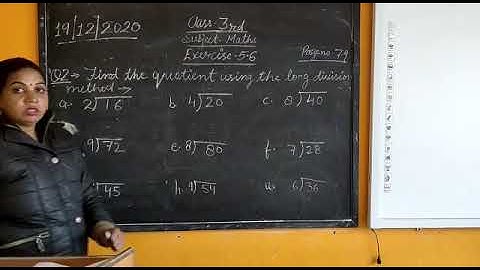 19/12/2020
Class-3rd
Subject-Maths
Exercise-5.6
Page no-79
Q2→ Find the quotient using the long division
method→
a. 2)16 b. 4)20 c. 8)40
9)72 e. 8)80 f. 7)28
45 h. 9)54 6)36